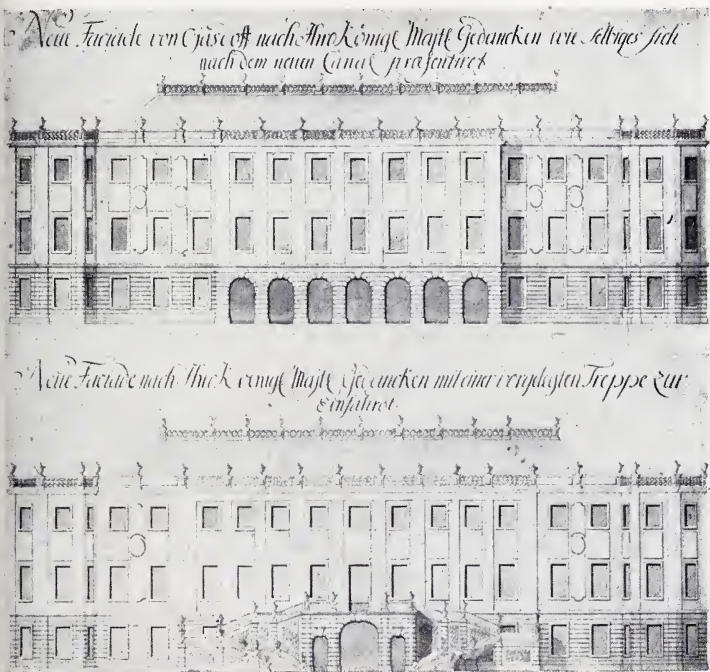 Neue Faciade von Ojascoff nach Ihro Königl Maytt Gedancken wie selbiges sich
nach dem neuen Canal præsentiret
Neue Faciade nach Ihro Königl Maytt Gedancken mit einer vorgelegten Treppe zur
Einfahret